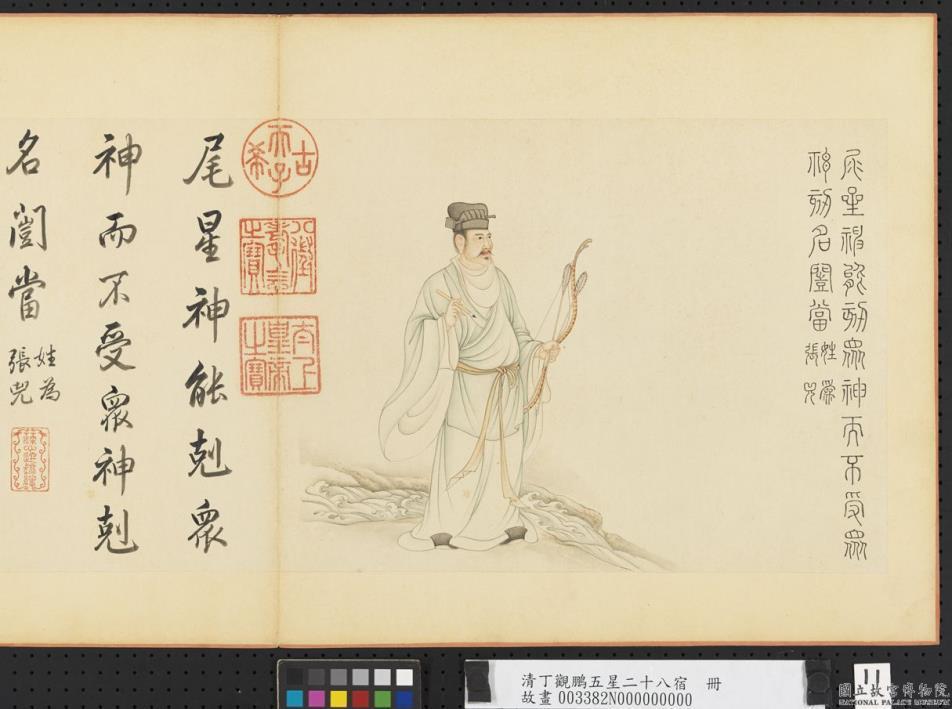 尾星神能剋眾神而不受眾
神剋名闓當姓為
張兕
古希天子
八徵耄念之寶
太上皇帝之寶
尾星神能剋眾
神而不受眾神剋
名闓當
姓為
張兕
清丁觀鵬五星二十八宿 冊
故畫003382N000000000
11
國立故宮博物院
NATIONAL PALACE MUSEUM